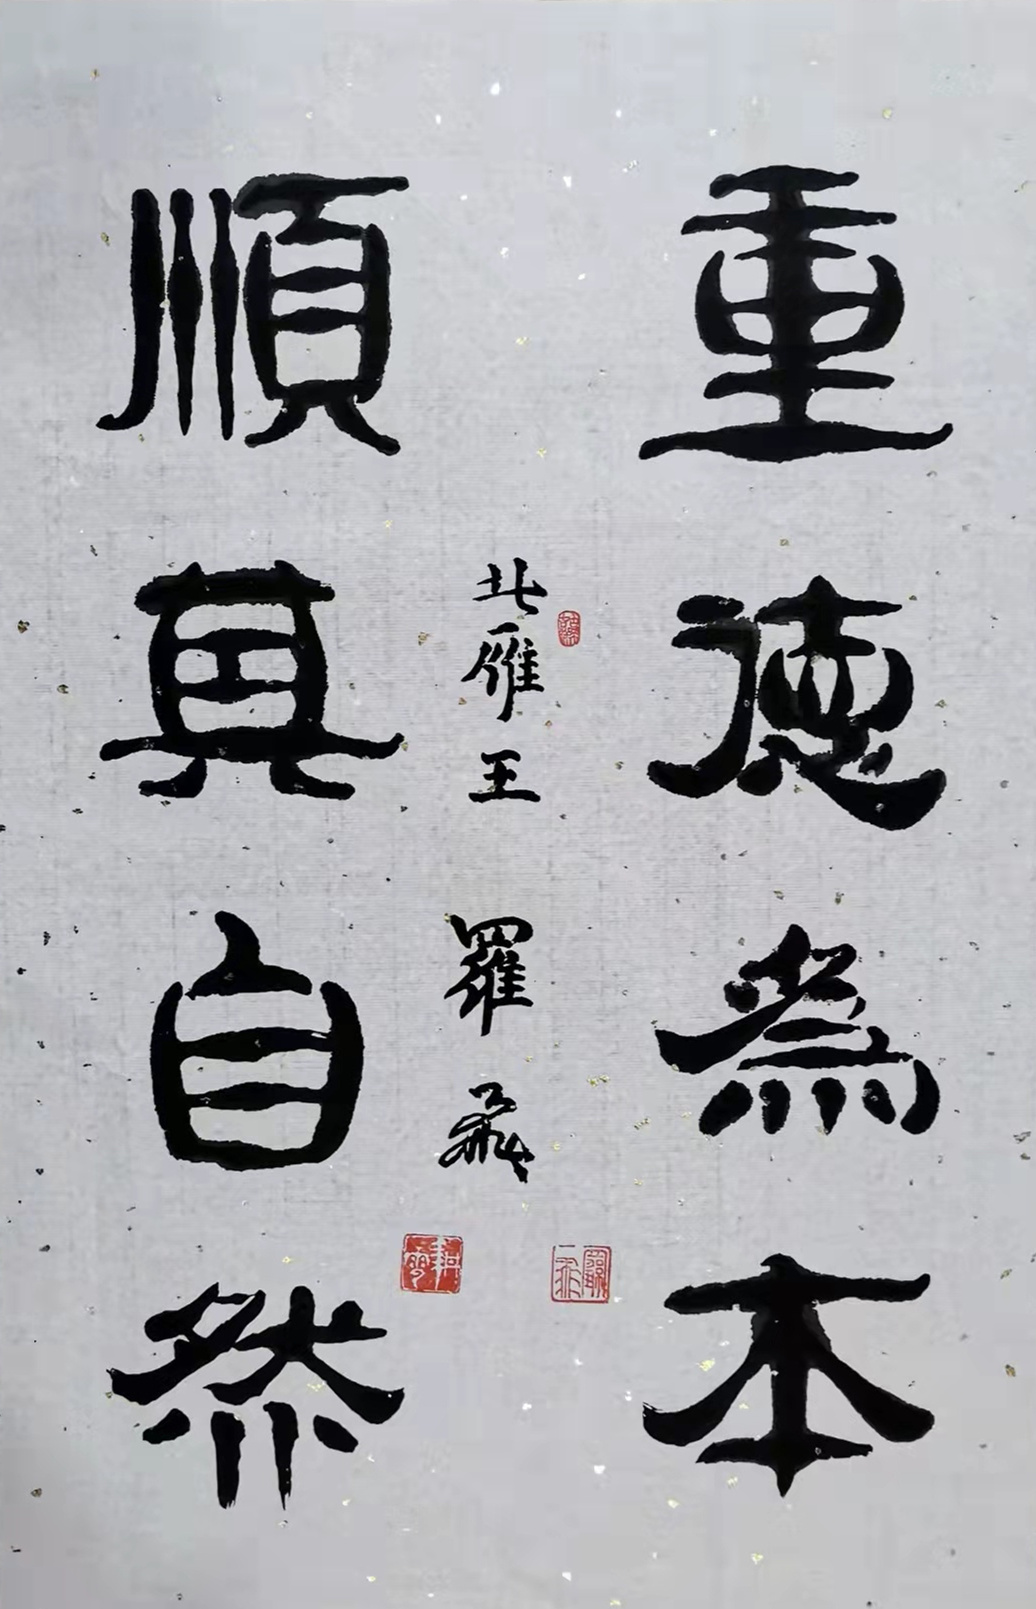 重德為本
順其自然
北雁王羅飛